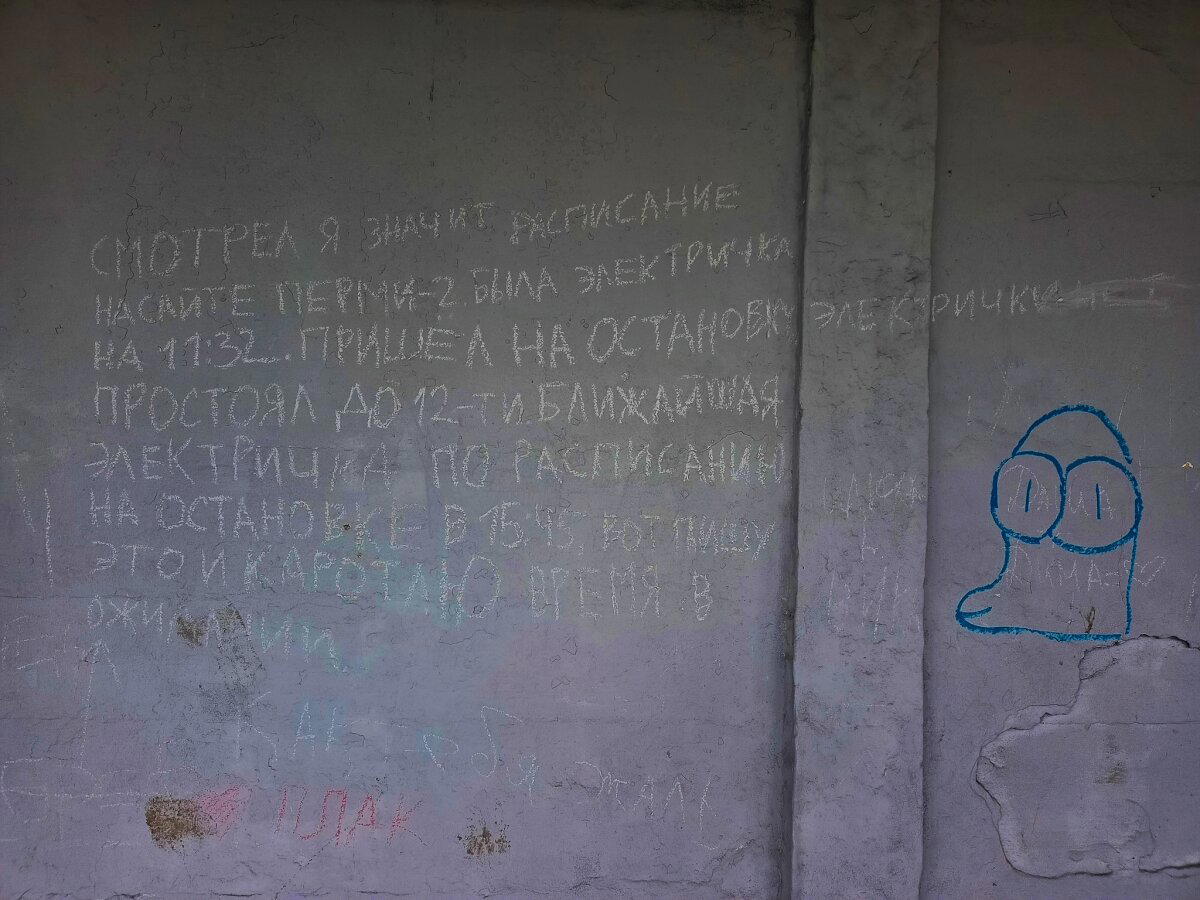 СМОТРЕЛ Я ЗНАЧИТ РАСПИСАНИЕ
НА САЙТЕ ПЕРМИ-2. БЫЛА ЭЛЕКТРИЧКА
НА 11:32. ПРИШЕЛ НА ОСТАНОВКУ ЭЛЕКТРИЧКИ НЕТ
ПРОСТОЯЛ ДО 12-ТИ. БЛИЖАЙШАЯ
ЭЛЕКТРИЧКА ПО РАСПИСАНИЮ
НА ОСТАНОВКЕ В 15:45, ВОТ ПИШУ
ЭТО И КАРОТАЮ ВРЕМЯ В
ОЖИДАНИИ
КАК тебя ЖАЛЬ
ПЛАК